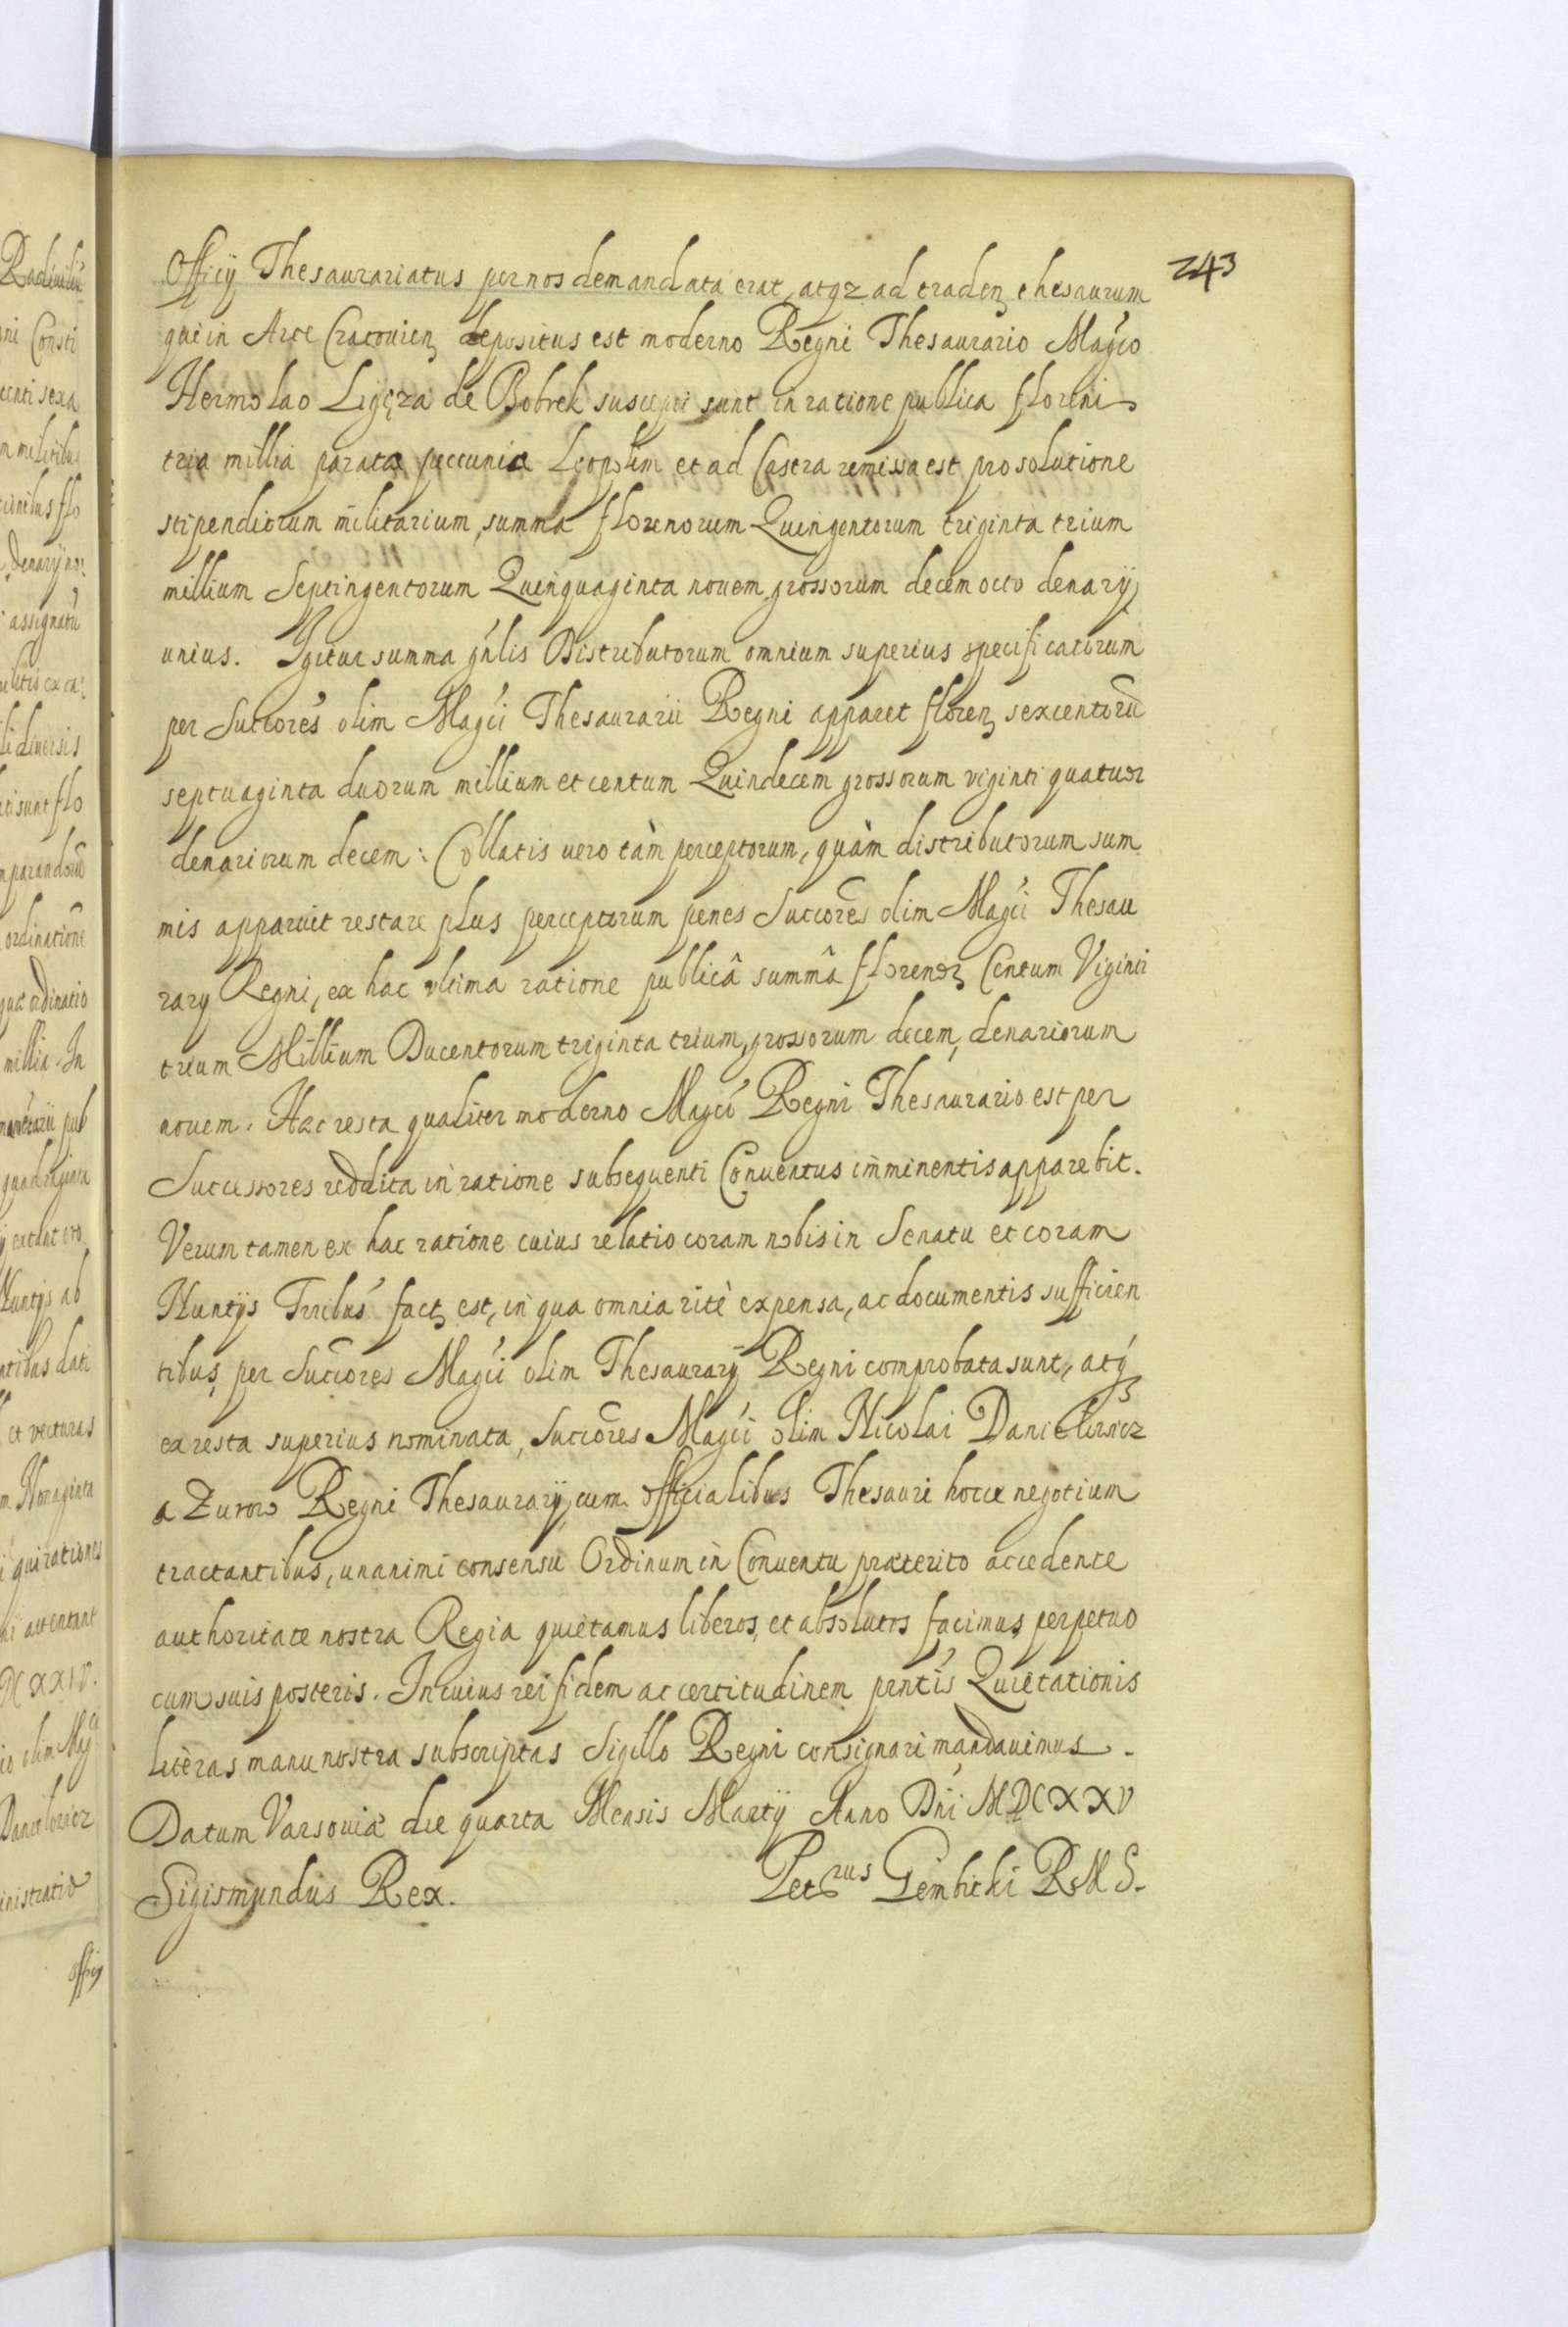 243
Officÿ Thesaurariatus per nos demandata erat, atqz ad traden thesaurum
qui in Arce Cracouien depositus est moderno Regni Thesaurario Mag̃co
Hermolao Ligęza de Bobrek suscepti sunt in ratione publica floreni
tria millia parata peccunia Leopolim et ad Castra remissa est pro solutione
stipendiorum militarium, summa florenorum Quingentorum triginta trium
millium Septingentorum Quinquaginta nouem grossorum decem octo denarÿ
unius. Igitur summa gńlis Distributorum omnium superius specificatorum
per Succores olim Magci Thesaurarii Regni apparet floren sexcentorũ
septuaginta duorum millium et centum Quindecem grossorum viginti quatuor
denariorum decem: Collatis uero tàm perceptorum, quàm distributorum sum
mis apparuit restare plus perceptorum penes Succores olim Magci Thesau
rarÿ Regni, ex hac ultima ratione publicâ summâ florenor Centum Viginti
trium Millium Ducentorum triginta trium, grossorum decem, denariorum
nouem. Hæc resta qualiter moderno Magco Regni Thesaurario est per
Successores reddita in ratione subsequenti Conuentus imminentis apparebit.
Verum tamen ex hac ratione cuius relatio coram nobis in Senatu et coram
Nuntÿs Trribus fact est, in qua omnia ritè expensa, ac documentis sufficien
tibus per Succores Magci olim Thesaurarÿ Regni comprobata sunt, atqz
ea resta superius nominata, Succores Magci olim Nicolai Danielowicz
a Zurow Regni Thesaurarÿ, cum officialibus Thesauri hocce negotium
tractantibus, unanimi consensu Ordinum in Conuentu præterito accedente
authoritate nostra Regia quietamus liberos, et absolutos facimus perpetuo
cum suis posteris. In cuius rei fidem ac certitudinem pntis Quietationis
literas manu nostra subscriptas Sigillo Regni consignari mandauimus.
Datum Varsouiæ die quarta Mensis Martÿ Anno Dni MDCXXV
Sigismundus Rex. Petrus Gembicki R M S.